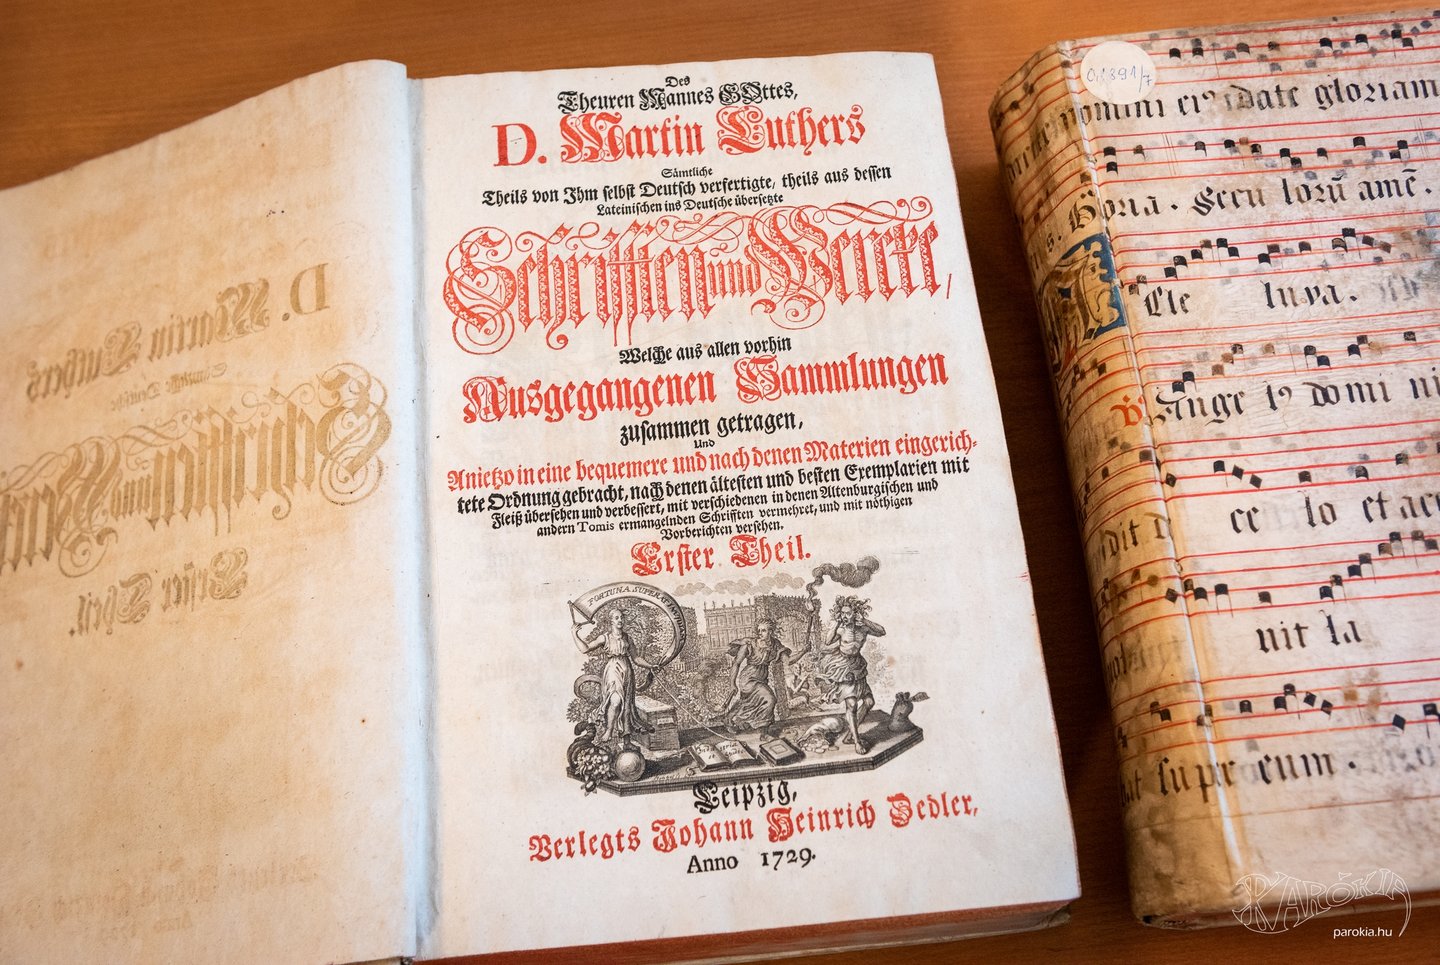 Des
Theuren Mannes GOttes,
D. Martin Luthers
Sämtliche
Theils von Ihm selbst Deutsch verfertigte, theils aus dessen
Lateinischen ins Deutsche übersetzte
Schrifften und Wercke,
Welche aus allen vorhin
Ausgegangenen Sammlungen
zusammen getragen,
Und
Anietzo in eine bequemere und nach denen Materien eingerich-
tete Ordnung gebracht, nach denen ältesten und besten Exemplarien mit
Fleiß übersehen und verbessert, mit verschiedenen in denen Altenburgischen und
andern Tomis ermangelnden Schrifften vermehret, und mit nöthigen
Vorberichten versehen.
Erster Theil.
FORTUNA SUPERAT
Leipzig,
Verlegts Johann Heinrich Zedler,
Anno 1729.
nomini ei date gloriam
Secu lorū amē.
luya.
domi ni
ce lo et
nit la
supr eum.
PARÓKIA
parokia.hu